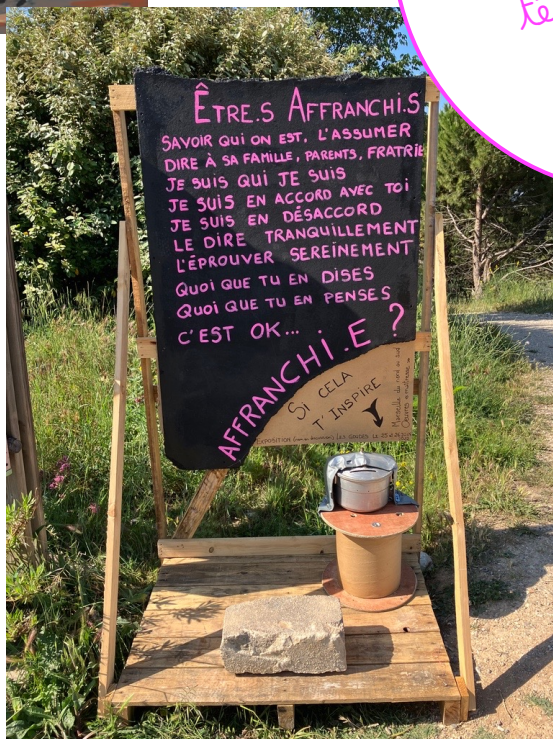 ÊTRE.S AFFRANCHI.S
SAVOIR QUI ON EST, L'ASSUMER
DIRE À SA FAMILLE, PARENTS, FRATRIE
JE SUIS QUI JE SUIS
JE SUIS EN ACCORD AVEC TOI
JE SUIS EN DÉSACCORD
LE DIRE TRANQUILLEMENT
L'ÉPROUVER SEREINEMENT
QUOI QUE TU EN DISES
QUOI QUE TU EN PENSES
C'EST OK...
AFFRANCHI.E ?
SI CELA
T'INSPIRE
EXPOSITION